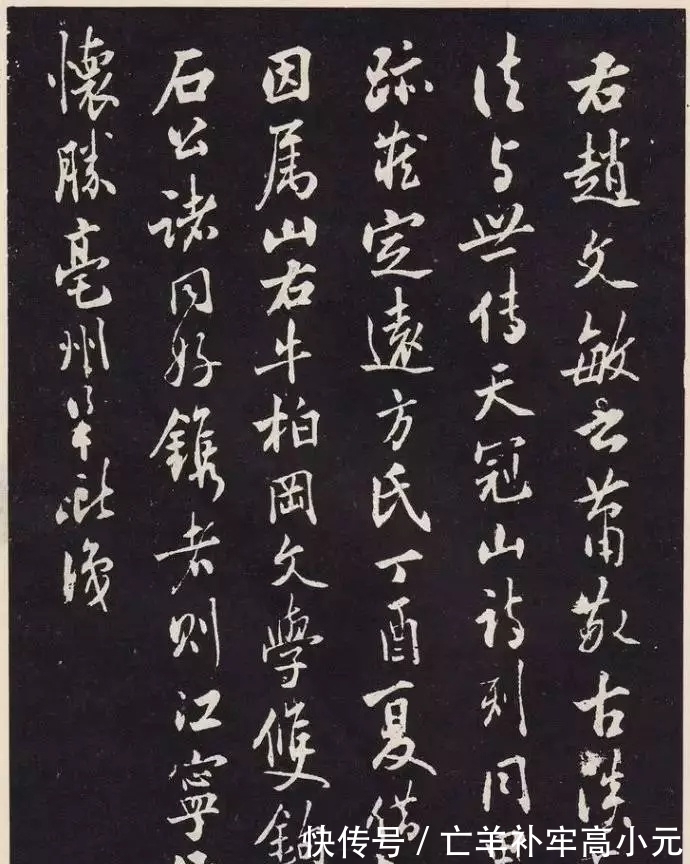 右趙文敏書蕭散古淡
法与世傳天冠山詩刻同
跡藏定遠方氏丁酉夏借
因属山右牛柏岡文學雙鉤
石公諸同好鐫者則江寧
懷勝亳州梁巘識
快传号/亡羊补牢高小元